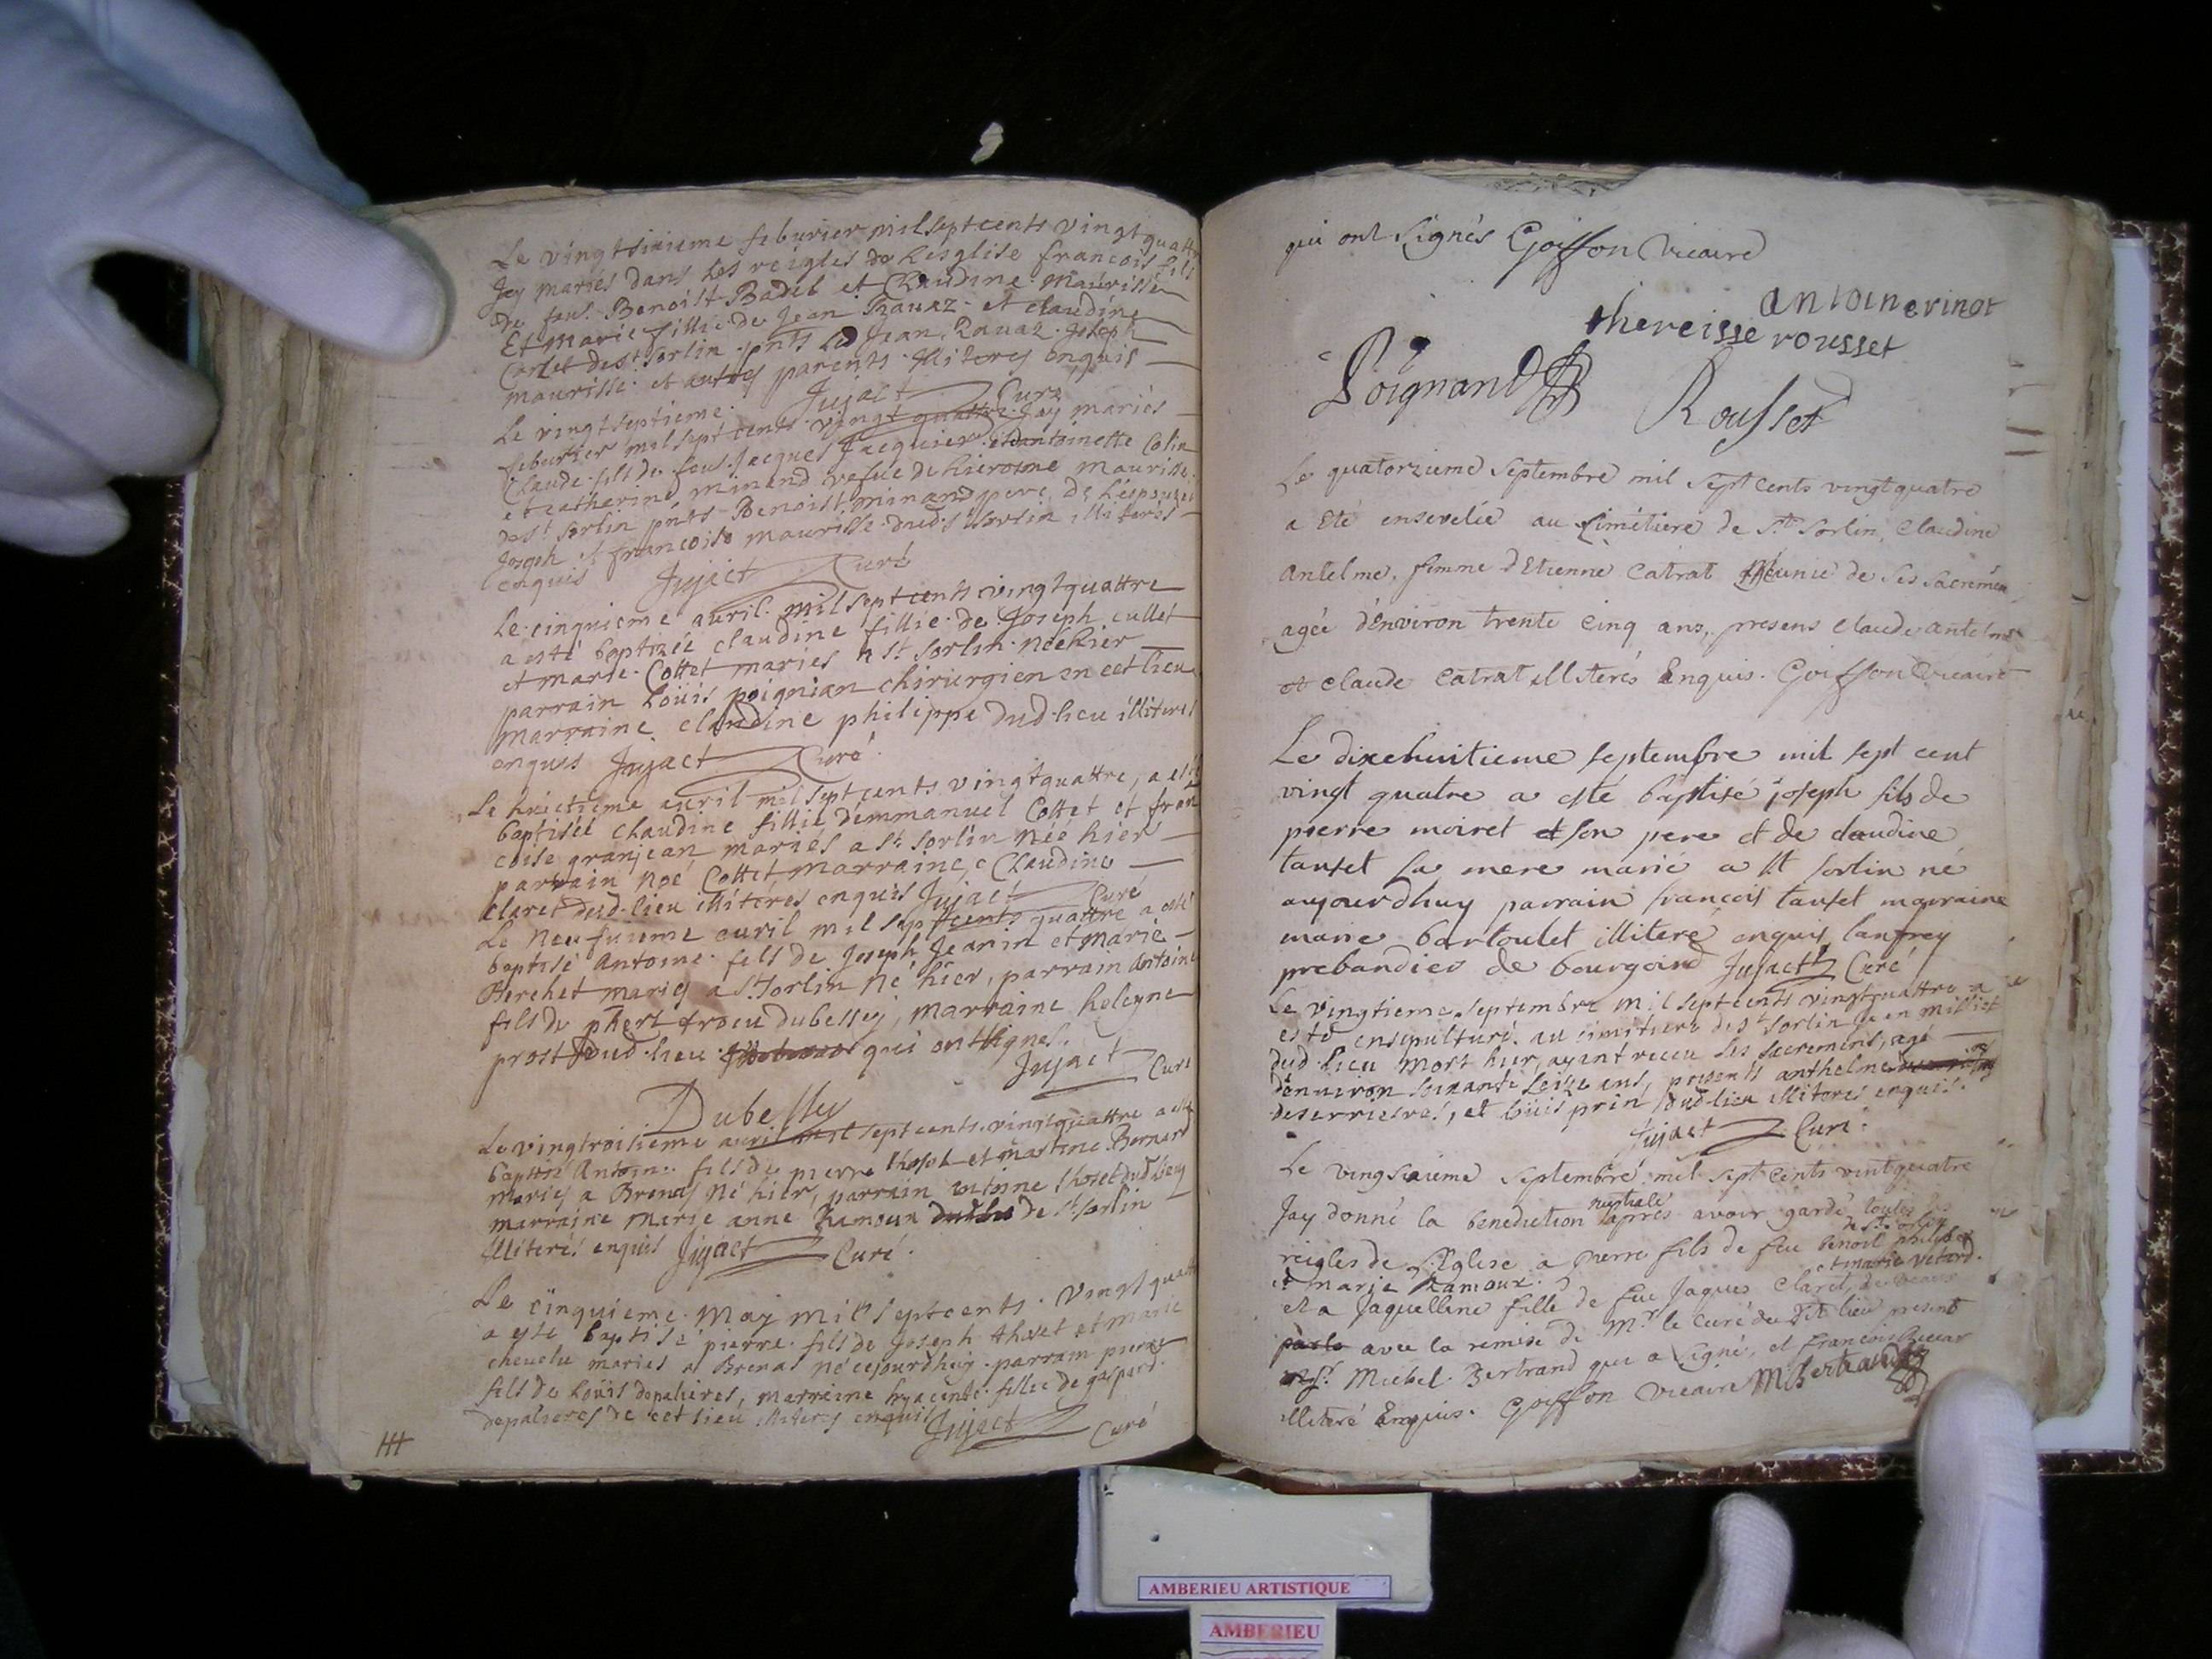 Le vingtsixieme feburier mil septcents vingtquattre
Jay mariés dans les reigles de Lesglise francois fils
de feu Benoist Badel et Claudine Maurisse
Et Marie fillie de Jean Ravaz et claudine
Carlet de st sorlin pnts led Jean Ravaz Joseph
maurisse et autres parents illiteres enquis
Jujact Curé
Le vingtseptieme
feburier mil sept cents vingt quattre Jay mariés
Claude fils de feu Jacques Jacquier et antoinette Colin
et catherine minand vefue de hierosme maurisse
de st sorlin pnts Benoist minand pere de l'espouse
Joseph et francoise maurisse dud st sorlin illiteres
enquis Jujact Curé
Le cinquieme auril mil septcents vingtquattre
a esté baptizée claudine fillie de Joseph cullet
et marie Cottet mariés a st sorlin née hier
parrain Loüis poignian chirurgien en cet lieu
marraine claudine philippe dud lieu illiteres
enquis Jujact Curé
Le huictieme auril mil septcents vingtquattre, a esté
baptisée claudine fillie d'emmanuel Cottet et fran
coise granjean mariés a st sorlin née hier
parrain noé Cottet marraine Claudine
claret dud lieu illiteres enquis Jujact Curé
Le neufuieme auril mil septcents quattre a esté
baptisé antoine fils de Joseph Jeanin et marie
Berchet mariés a st sorlin né hier, parrain antoine
fils de dubessey, marraine heleyne
prost dud lieu qui ont signes.
Jujact Curé
Dubessey
Le vingtroisieme auril mil septcents vingtquattre a esté
baptisé antoine fils de pierre thoset et martine Bernard
mariés a Brenas né hier, parrain antoine thoset dud lieu
marraine marie anne Ramoux de st sorlin
illiterés enquis Jujact Curé.
Le cinquieme may mil septcents vingtquattre
a esté baptisé pierre fils de Joseph thoset et marie
cheuelu mariés a Brenas né cejourdhuy parrain pierre
fils de Loüis depalieres, marraine hyacente fillie de gaspard
depalieres de cet lieu illiteres enquis
Jujact Curé
qui ont signés Goiffon vicaire
antoine vinot
thereisse rousset
Poignand
Rousset
Le quatorzieme septembre mil sept cents vingtquatre
a été ensevelie au cimétiere de St Sorlin, Claudine
antelme, femme d'Etienne Catrat munie de ses sacremens
agée d'environ trente cinq ans, presens claude antelme
et claude catrat illiterés Enquis. Goiffon vicaire
Le dixehuitieme septembre mil sept cent
vingt quatre a esté baptisé joseph fils de
pierre moiret et son pere et de claudine
tantet sa mere marie a st sorlin né
aujourdhuy parrain francois tantet marraine
marie bartoulet illitere enquis lanfrey
prebandier de bourgoind Jujact Curé
Le vingtieme septembre mil septcents vingtquattre a
esté ensepulturé au cimitiere de st sorlin Jean millet
dud lieu mort hier, ayant receu les sacremens, agé
d'enuiron soixante seize ans, presents anthelme
deserrieres, et Loüis prin dud lieu illiteres enquis.
Jujact Curé.
Le vingsixieme septembre mil sept cents vintquatre
Jay donné la benediction nuptiale apres avoir gardé toutes les
reigles de l'Eglise a pierre fils de feu benoit philippe de st Sorlin
et marie Ramoux. et marie vetard.
et a Jaquelline fille de feu Jaques Claret
avec la remise de Mr le curé du dit lieu present
Michel Bertrand qui a signé, et francois Ravaz
illiteré Enquis. Goiffon vicaire MBertrand
AMBERIEU ARTISTIQUE
AMBERIEU